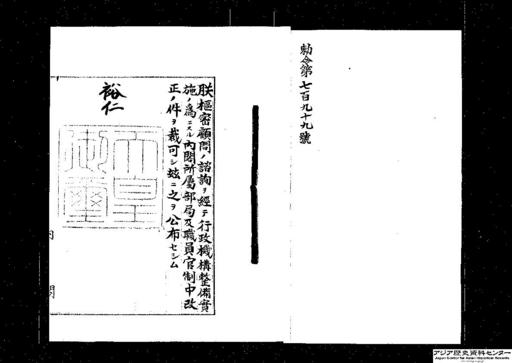 勅令第七百九十九號
朕樞密顧問ノ諮詢ヲ經テ行政機構整備實
施ノ爲ニスル內閣所屬部局及職員官制中改
正ノ件ヲ裁可シ玆ニ之ヲ公布セシム
裕仁
天皇
御璽
アジア歴史資料センター